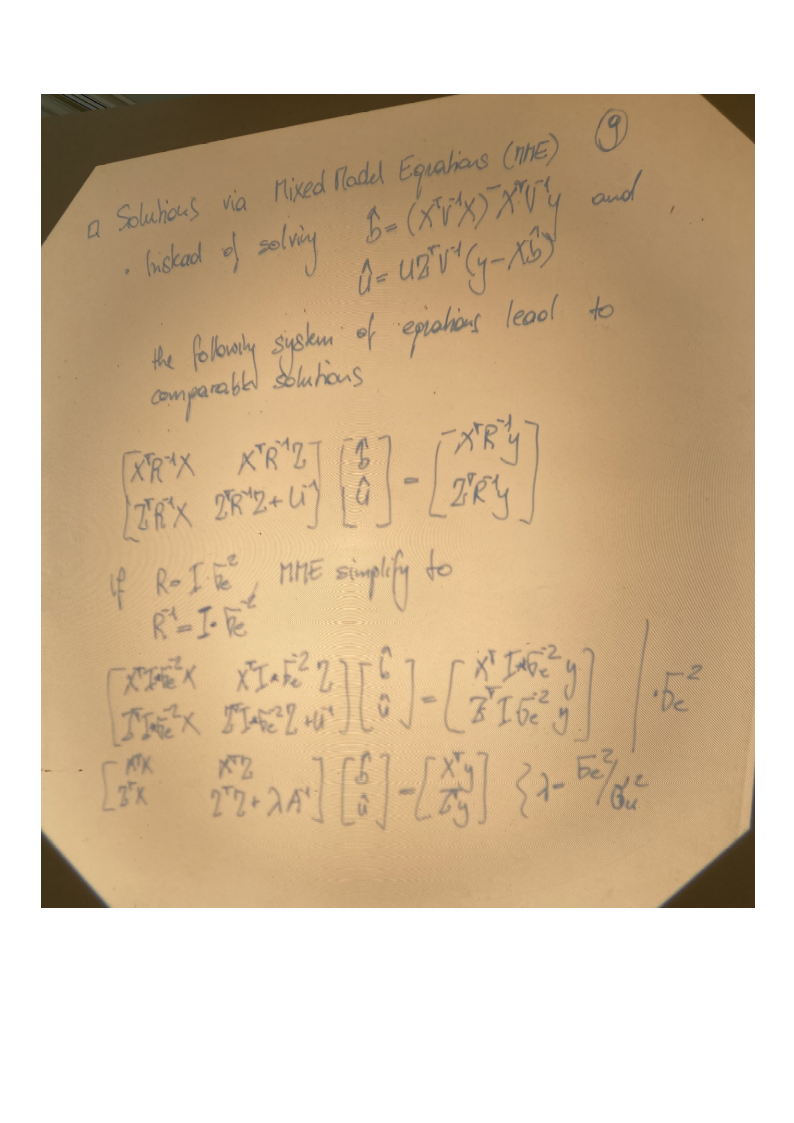 9
□ Solutions via Mixed Model Equations (MME)
• Instead of solving b̂ = (XᵀV⁻¹X)⁻XᵀV⁻¹y and
û = UZᵀV⁻¹(y − Xb̂)
the following system of equations lead to
comparable solutions
[XᵀR⁻¹X XᵀR⁻¹Z] [b̂] = [XᵀR⁻¹y]
[ZᵀR⁻¹X ZᵀR⁻¹Z + U⁻¹] [û] [ZᵀR⁻¹y]
if R = I·σe², MME simplify to
R⁻¹ = I·σe⁻²
[XᵀI*σe⁻²X XᵀI*σe⁻²Z] [b̂] = [XᵀI*σe⁻²y] | ·σe²
[ZᵀI*σe⁻²X ZᵀI*σe⁻²Z + U⁻¹] [û] [ZᵀIσe⁻²y]
[XᵀX XᵀZ] [b̂] = [Xᵀy] { λ = σe²/σu²
[ZᵀX ZᵀZ + λA⁻¹] [û] [Zᵀy]